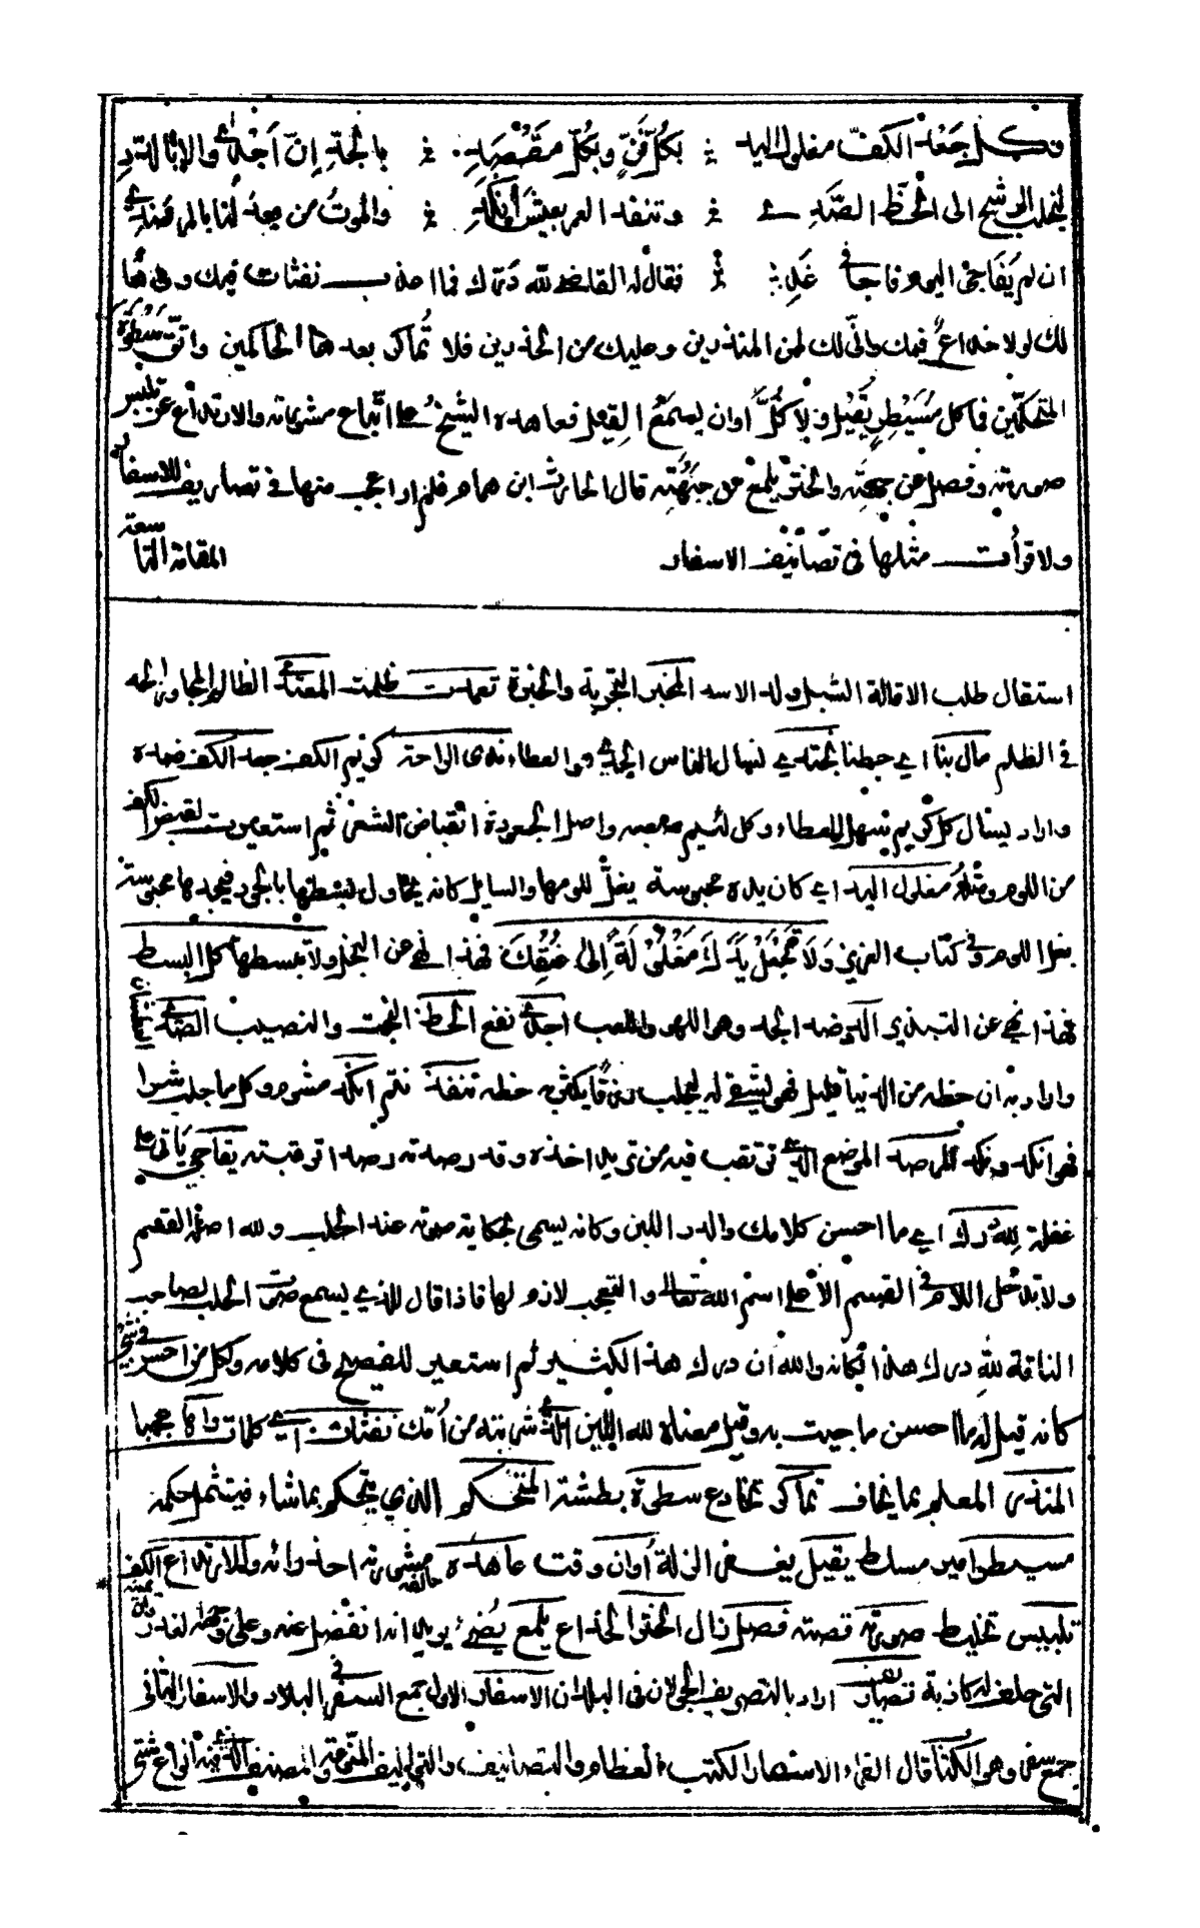 وكل جعد الكف مغلول اليد بكل فن وبكل مقصد بالجد ان اجدى والا بالدد
ليجلب الرشح الى الحظ الصدى وتنفد العمر بعيش انكد والموت من بعد لنا بالمرصد
ان لم يفاجى اليوم فاجا في غد فقال له القاضي لله درك فما اعذب نفثات فيك وواها
لك لولا خداع فيك واني لك لمن المنذرين وعليك من الحذرين فلا تماكر بعدها الحاكمين واتق سطوة
المتحكمين فما كل مسيطر يقيل ولا كل اوان يسمع القيل فعاهده الشيخ على اتباع مشورته والارتداع عن تلبيس
صورته وفصل عن جهته والختر يلمع من جبهته قال الحارث ابن همام فلم ار اعجب منها في تصاريف الاسفار
ولا قرأت مثلها في تصانيف الاسفار المقامة التاسعة
استقال طلب الاقالة الشبل ولد الاسد المخبر التجربة والخبرة تعديت ظلمت المعتدي الظالم المجاوز الحد
في الظلم مال بنا اي حطنا نجتدي لنسال الناس الجدى وهو العطاء ندى الراحة كريم الكف جعد الكف ضده
واراد ليسال كل كريم سهل العطاء وكل لئيم صعبه واصل الجعودة انقباض الشعر ثم استعيرت لقبض الكف
من اللوم ومثله مغلول اليد اي كان يده محبوسة بغل للومها والسايل كانه يحاول لبسطها بالجود فيجدها محبوسة
بغل اللوم وفي كتاب العزيز ولا تجعل يدك مغلولة الى عنقك فهذا نهي عن البخل ولا تبسطها كل البسط
فهذا نهي عن التبذير الدد ضد الجد وهو اللهو واللعب اجدى نفع الحظ البخت والنصيب الصدى العطشان
واراد به ان حظه من الدنيا قليل فهو ليسقى له ليجلب رزقا يكثر به حظه تنفد نتم انكد مشوم وكل ما جلب شرا
فهو انكد ونكد المرصد الموضع الذي ترتقب فيه من تريد اخذه وقد رصدته رصدا ترقبته يفاجي ياتي على
غفلة لله درك اي ما احسن كلامك والدر اللبن وكانه يسمى بحكاية صوته عند الحلب ولله اصله القسم
ولا تدخل اللام في القسم الا على اسم الله تعالى والتعجب لازم لها فاذا قال للذي يسمع صوت الحلب لصاحب
الناقة لله درك هذا فكانه والله ان درك هذا لكثير ثم استعير للفصيح في كلامه ولكل من احسن في شيء
كانه قيل له ما احسن ما جيت به وقيل معناه لله اللبن الذي شربته من امك نفثات اي كلمات واها عجبا
المنذرين المعلم بما يخاف تماكر تخادع سطوة بطشة المتحكم الذي يتحكم بما شاء فيتمثل حكمه
مسيطر امير مسلط يقيل يغفر الزلة اوان وقت عاهده حالفه مشورته احد ارائه والارتداع الكف
تلبيس تخليط صورته قصته فصل زال الختر الخداع يلمع يضيء يريد انه انفصل عنه وعلى وجهه لغدر وان يمينه
التي حلف له كاذبة تصاريف اراد بالتصريف الجولان في البلدان الاسفار الاول جمع السفر في البلاد والاسفار الثاني
جمع سفر وهو الكتاب قال الفراء الاسفار الكتب العظام والتصانيف والتواليف المنوعة والمصنف الذي فيه انواع شتى